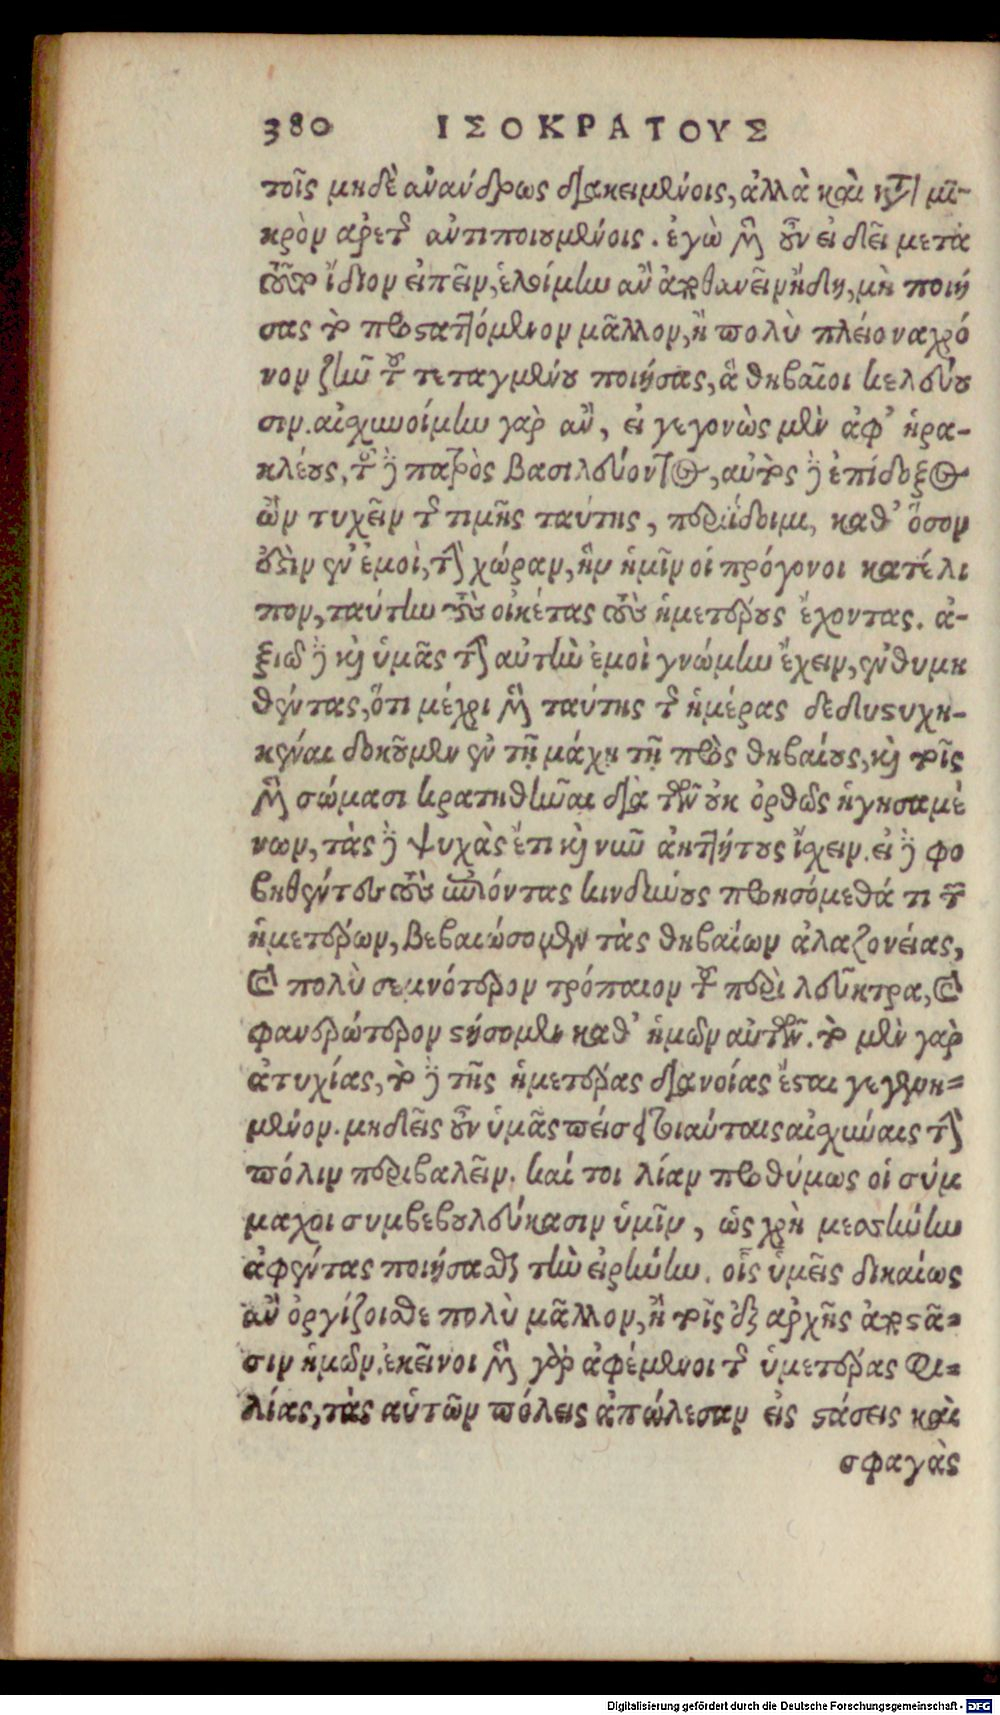 380 ΙΣΟΚΡΑΤΟΥΣ
τοῖς μηδὲ ἀνάνδρως διακειμένοις, ἀλλὰ καὶ κατὰ μι-
κρὸν ἀρετῆς ἀντιποιουμένοις. ἐγὼ μὲν οὖν εἰ δεῖ μετὰ
τοὐμὸν ἴδιον εἰπεῖν, ἑλοίμην ἂν ἀποθανεῖν ἤδη, μὴ ποιή
σας τὸ προσταττόμενον μᾶλλον, ἢ πολὺ πλείονα χρό
νον ζῆν τοῦ τεταγμένου ποιήσας, ἃ θηβαῖοι κελεύου
σιν. αἰσχυνοίμην γὰρ ἂν, εἰ γεγονὼς μὲν ἀφ' ἡρα-
κλέους, τοῦ δὲ πατρὸς βασιλεύοντος, αὐτὸς δὲ ἐπίδοξος
ὢν τυχεῖν τῆς τιμῆς ταύτης, περιίδοιμι, καθ' ὅσον
ἐστὶν ἐν ἐμοὶ, τὴν χώραν, ἣν ἡμῖν οἱ πρόγονοι κατέλι
πον, ταύτην τοὺς οἰκέτας τοὺς ἡμετέρους ἔχοντας. ἀ-
ξιῶ δὲ καὶ ὑμᾶς τὴν αὐτὴν ἐμοὶ γνώμην ἔχειν, ἐνθυμη
θέντας, ὅτι μέχρι μὲν ταύτης τῆς ἡμέρας δεδυστυχη-
κέναι δοκοῦμεν ἐν τῇ μάχῃ τῇ πρὸς θηβαίους, καὶ τοῖς
μὲν σώμασι κρατηθῆναι διὰ τὸν οὐκ ὀρθῶς ἡγησαμέ
νων, τὰς δὲ ψυχὰς ἔτι καὶ νῦν ἀηττήτους ἔχειν. εἰ δὲ φο
βηθέντες τοὺς ἐπιόντας κινδύνους προησόμεθά τι τῶν
ἡμετέρων, βεβαιώσομεν τὰς θηβαίων ἀλαζονείας,
καὶ πολὺ σεμνότερον τρόπαιον τοῦ περὶ λεῦκτρα, καὶ
φανερώτερον στήσομεν καθ' ἡμῶν αὐτῶν. τὸ μὲν γὰρ
ἀτυχίας, τὸ δὲ τῆς ἡμετέρας διανοίας ἔσται γεγενη-
μένον. μηδεὶς οὖν ὑμᾶς πείσῃ τοιαύταις αἰσχύναις τὴν
πόλιν περιβαλεῖν. καί τοι λίαν προθύμως οἱ σύμ
μαχοι συμβεβουλεύκασιν ὑμῖν, ὡς χρὴ μεσσήνην
ἀφέντας ποιήσασθαι τὴν εἰρήνην. οἷς ὑμεῖς δικαίως
ἂν ὀργίζοισθε πολὺ μᾶλλον, ἢ τοῖς ἐξ ἀρχῆς ἀποστᾶ-
σιν ἡμῶν. ἐκεῖνοι μὲν γὰρ ἀφέμενοι τῆς ὑμετέρας φι-
λίας, τὰς αὑτῶν πόλεις ἀπώλεσαν εἰς στάσεις καὶ
σφαγὰς
Digitalisierung gefördert durch die Deutsche Forschungsgemeinschaft - DFG